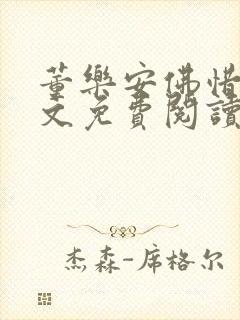 董樂安佛惜
文免費閱讀
杰森-席格尔